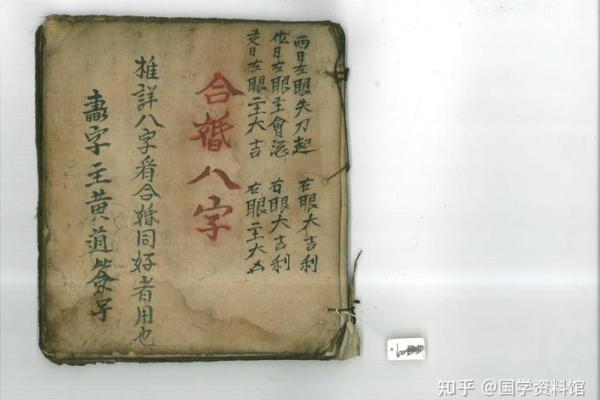 酉日左眼失刀起 右眼大吉利
日左眼主會 右眼大吉利
亥日左眼主大吉 右眼主大凶
合婚八字
推詳八字看合婚同好者用也
字主黃道
知乎 @国学资料馆